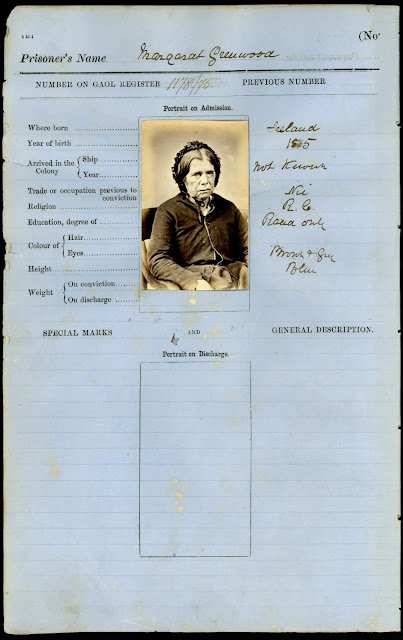 (No
Prisoner's Name Margaret Greenwood
NUMBER ON GAOL REGISTER 1178/75 PREVIOUS NUMBER
Portrait on Admission.
Where born .................. Ireland
Year of birth ..................
Arrived in the Colony { Ship .................. Not Known
Year..................
Trade or occupation previous to conviction Nil
Religion .................. R. C.
Education, degree of .................. Read only
Colour of { Hair.................. Brown & Grey
Eyes.................. Blue
Height..................
Weight { On conviction..................
On discharge ..................
SPECIAL MARKS AND GENERAL DESCRIPTION.
Portrait on Discharge.